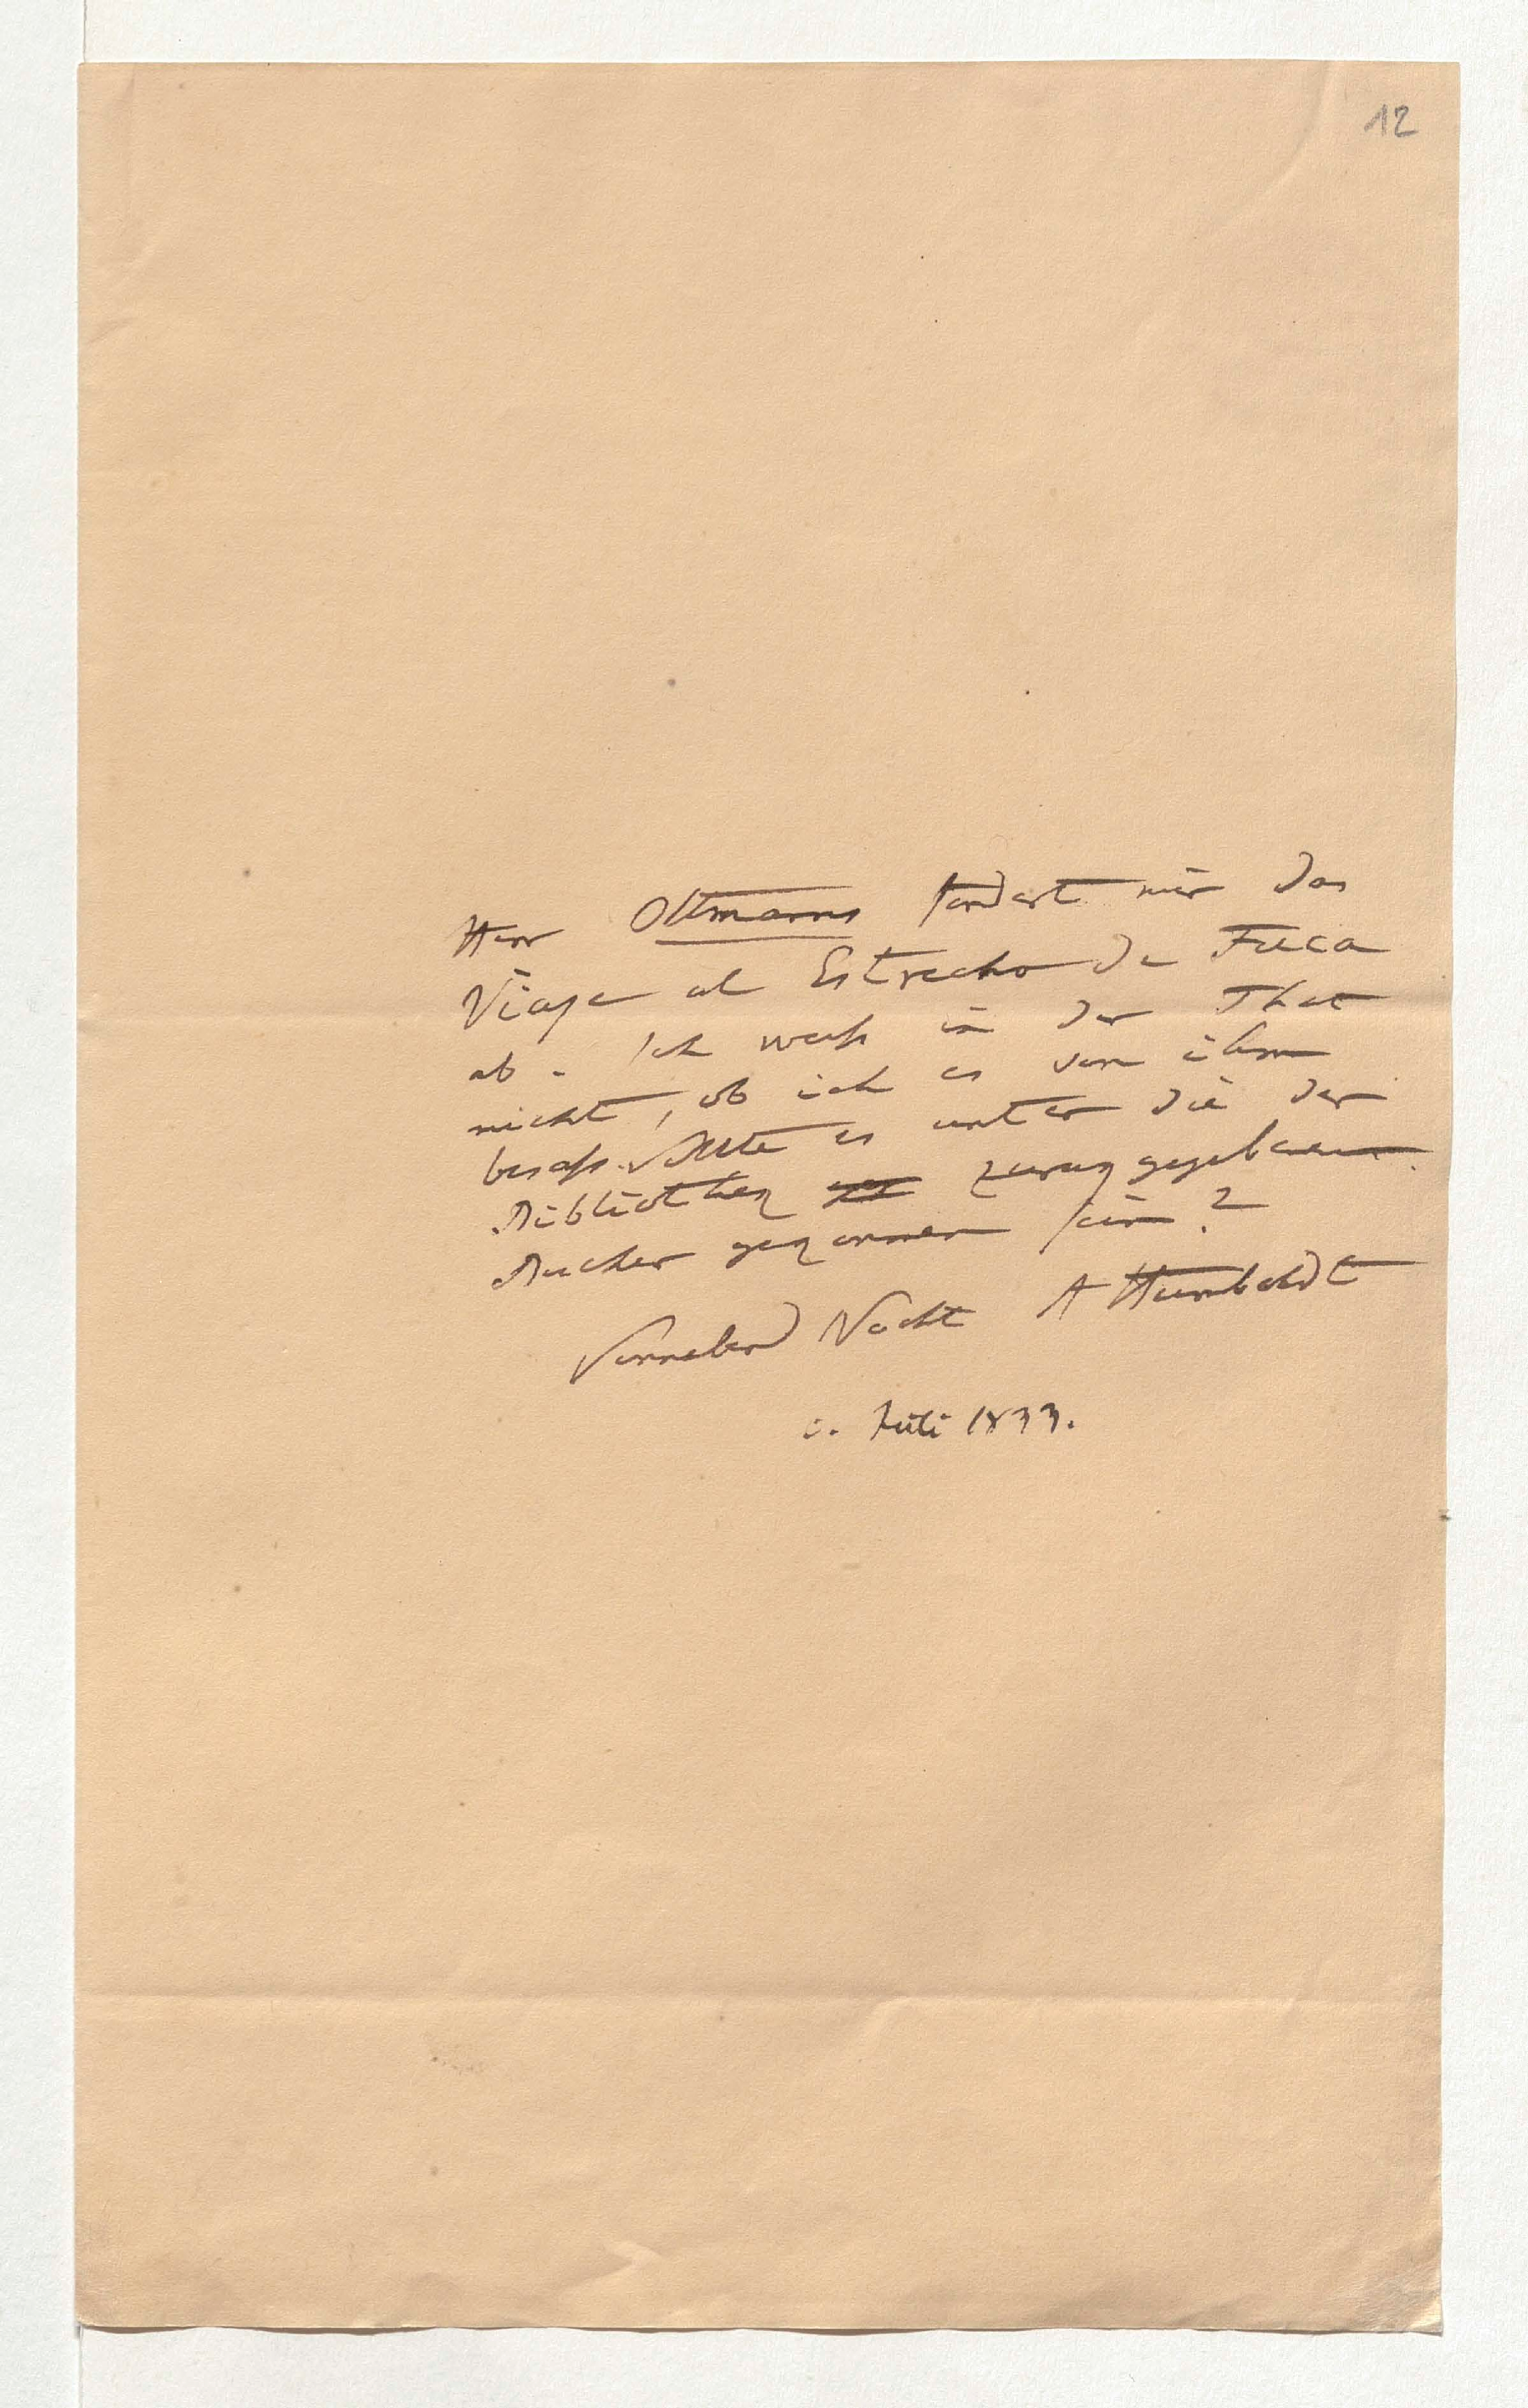 12
Herr Oltmanns fordert mir das
Viage al Estrecho de Fuca
ab. Ich weiß in der That
nicht, ob ich es von ihm
besaß. Sollte es unter die der
Bibliothek zurukgegebenen
Bucher gekommen sein?
Sonnabend Nacht A Humboldt
Juli 1833.